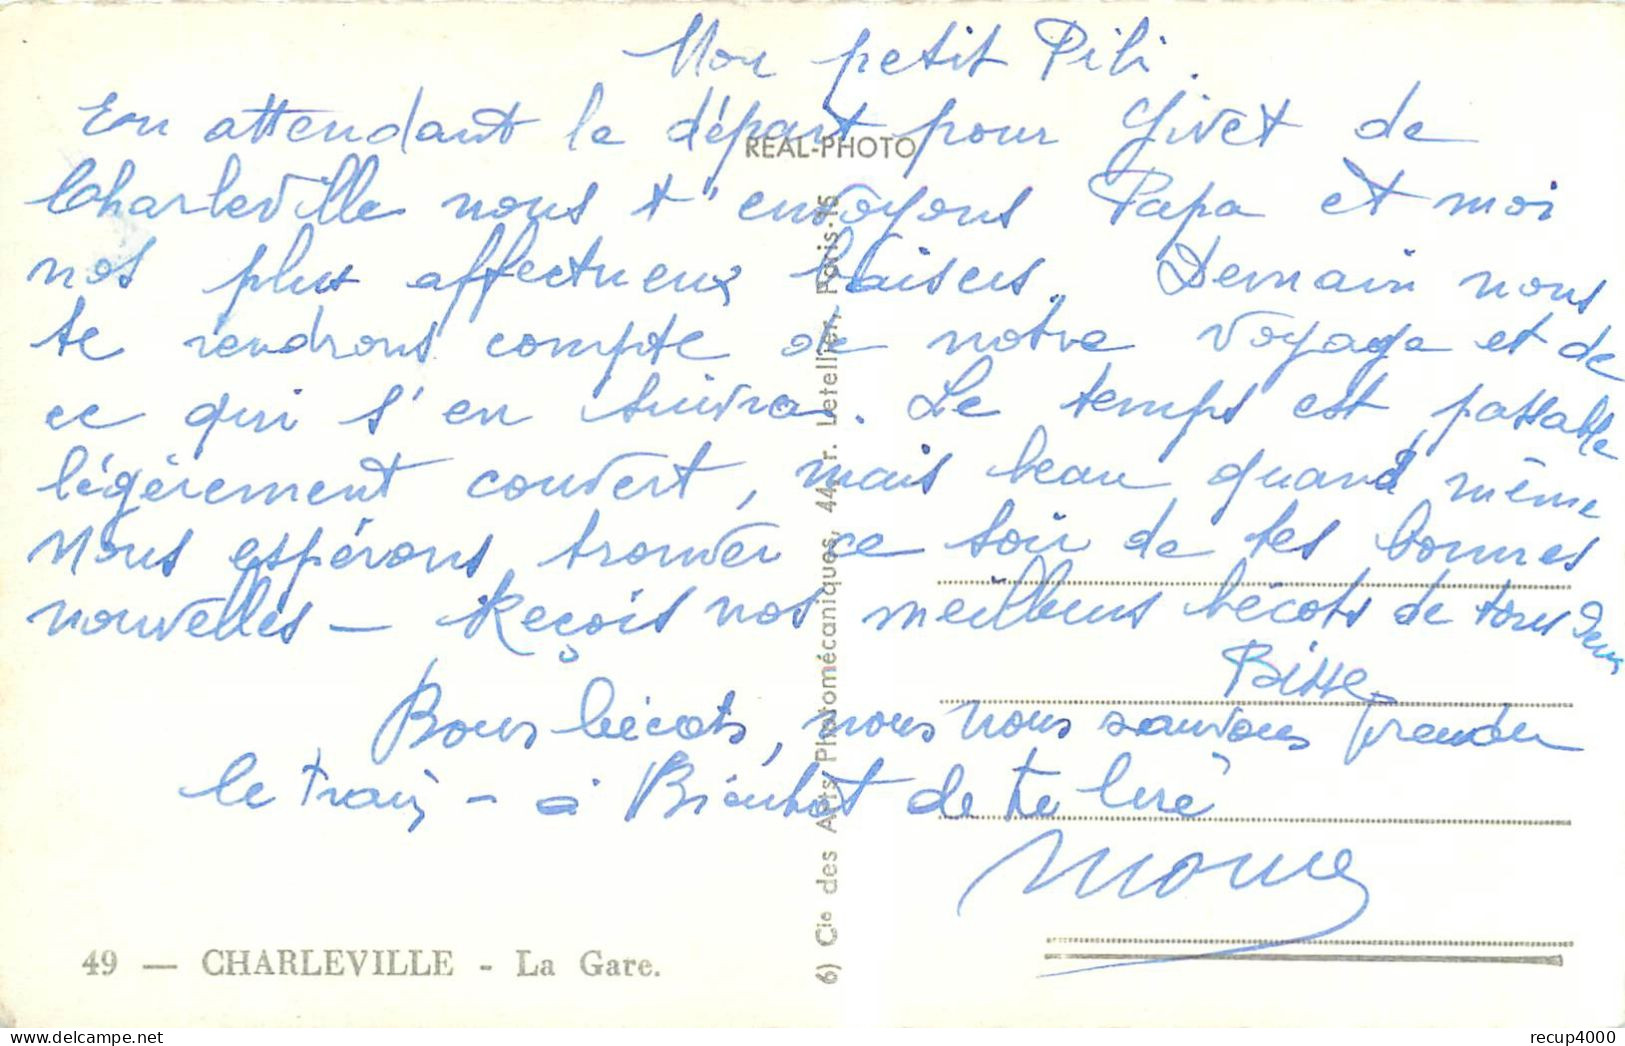 Mon petit Pili.
En attendant le départ pour Givet de
Charleville nous t'envoyons Papa et moi
nos plus affectueux baisers. Demain nous
te rendrons compte de notre voyage et de
ce qui s'en suivra. Le temps est passable
légèrement couvert, mais beau quand même
Nous espérons trouver ce soir de tes bonnes
nouvelles – Reçois nos meilleurs bécots de tous deux
Bisse
Bons bécots, nous nous sauvons prendre
le train – à Bientôt de te lire
REAL-PHOTO
6) Cie des Arts Photomécaniques, 44, r. Letellier, Paris-15
49 — CHARLEVILLE - La Gare.
recup4000